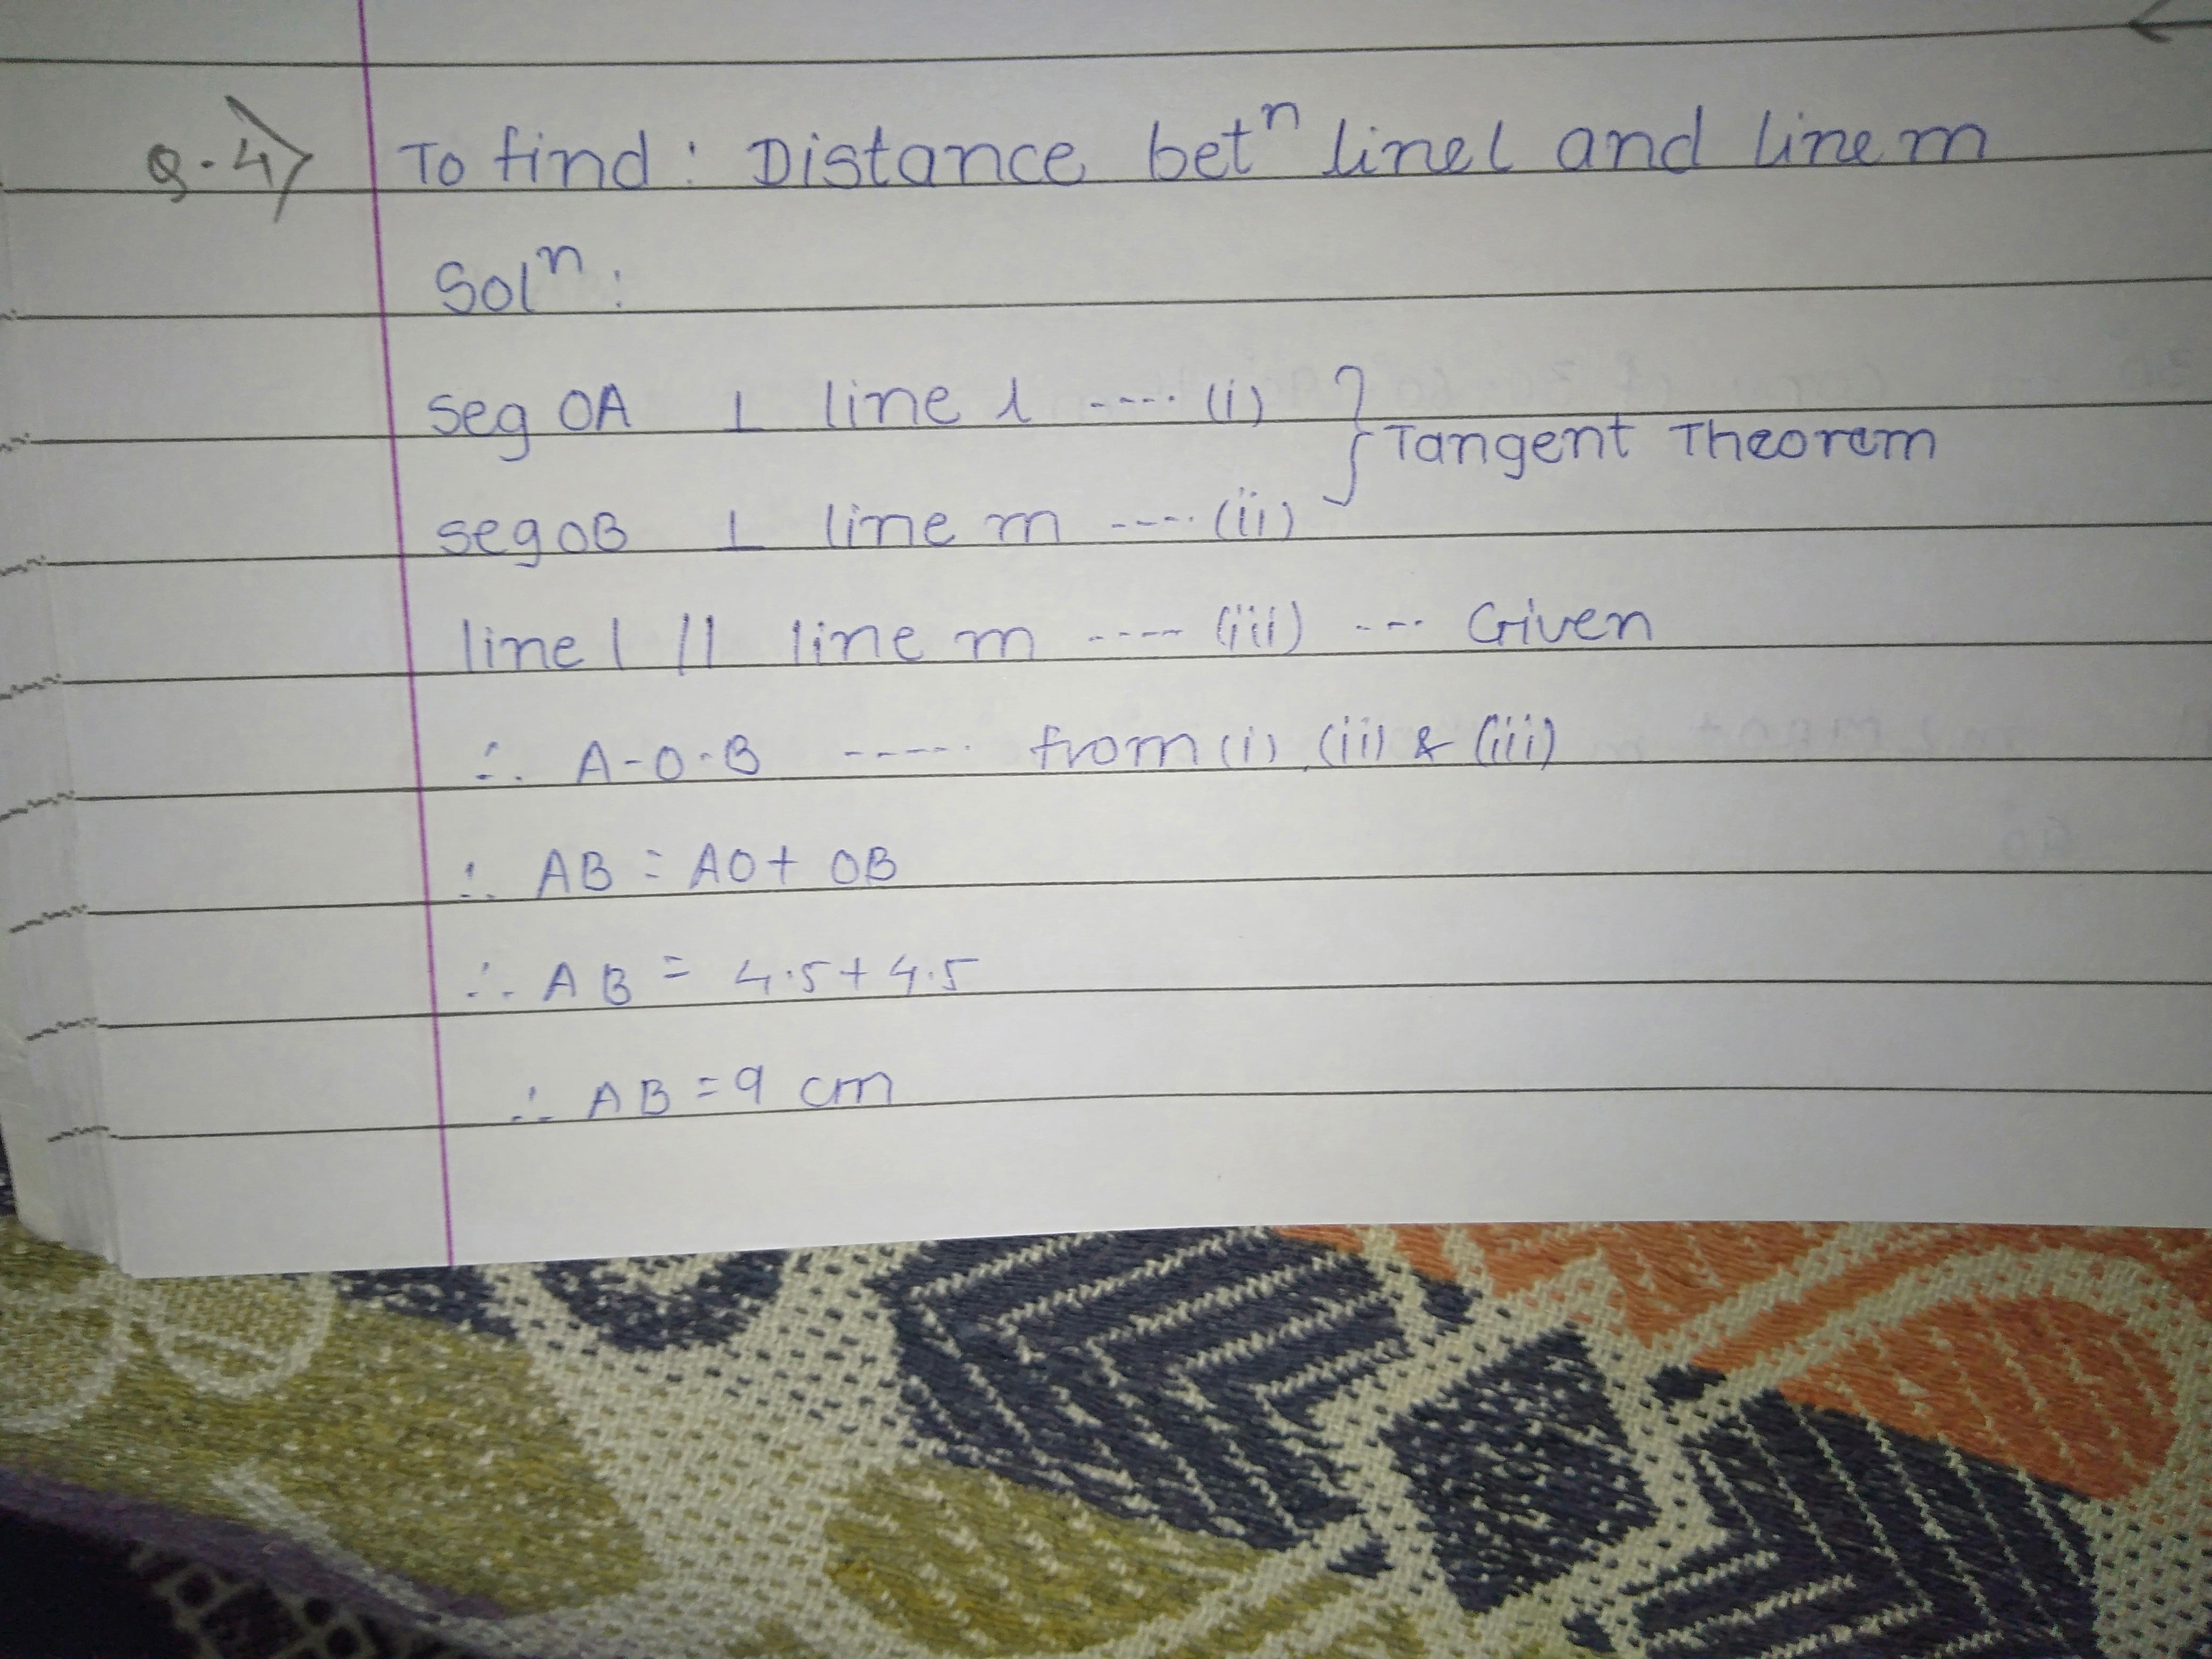 Q.4) To find: Distance betⁿ line l and line m
Solⁿ:
seg OA ⊥ line l ---- (i)
} Tangent Theorem
seg OB ⊥ line m ---- (ii)
line l || line m ---- (iii) --- Given
∴ A-O-B ----- from (i), (ii) & (iii)
∴ AB = AO + OB
∴ AB = 4.5 + 4.5
∴ AB = 9 cm